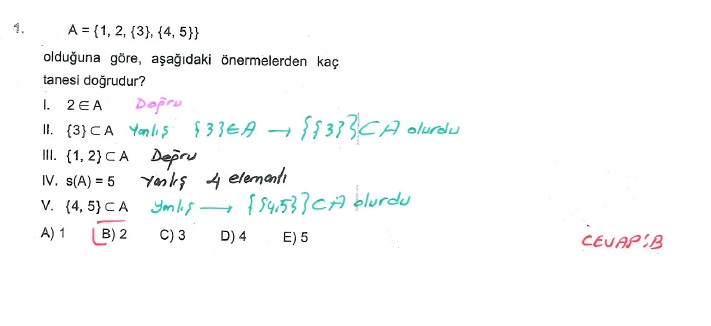 9. A = {1, 2, {3}, {4, 5}}
olduğuna göre, aşağıdaki önermelerden kaç
tanesi doğrudur?
I. 2 ∈ A Doğru
II. {3} ⊂ A Yanlış {3}∈A → {{3}}⊂A olurdu
III. {1, 2} ⊂ A Doğru
IV. s(A) = 5 Yanlış 4 elemanlı
V. {4, 5} ⊂ A Yanlış → {{4,5}}⊂A olurdu
A) 1 B) 2 C) 3 D) 4 E) 5
CEVAP:B